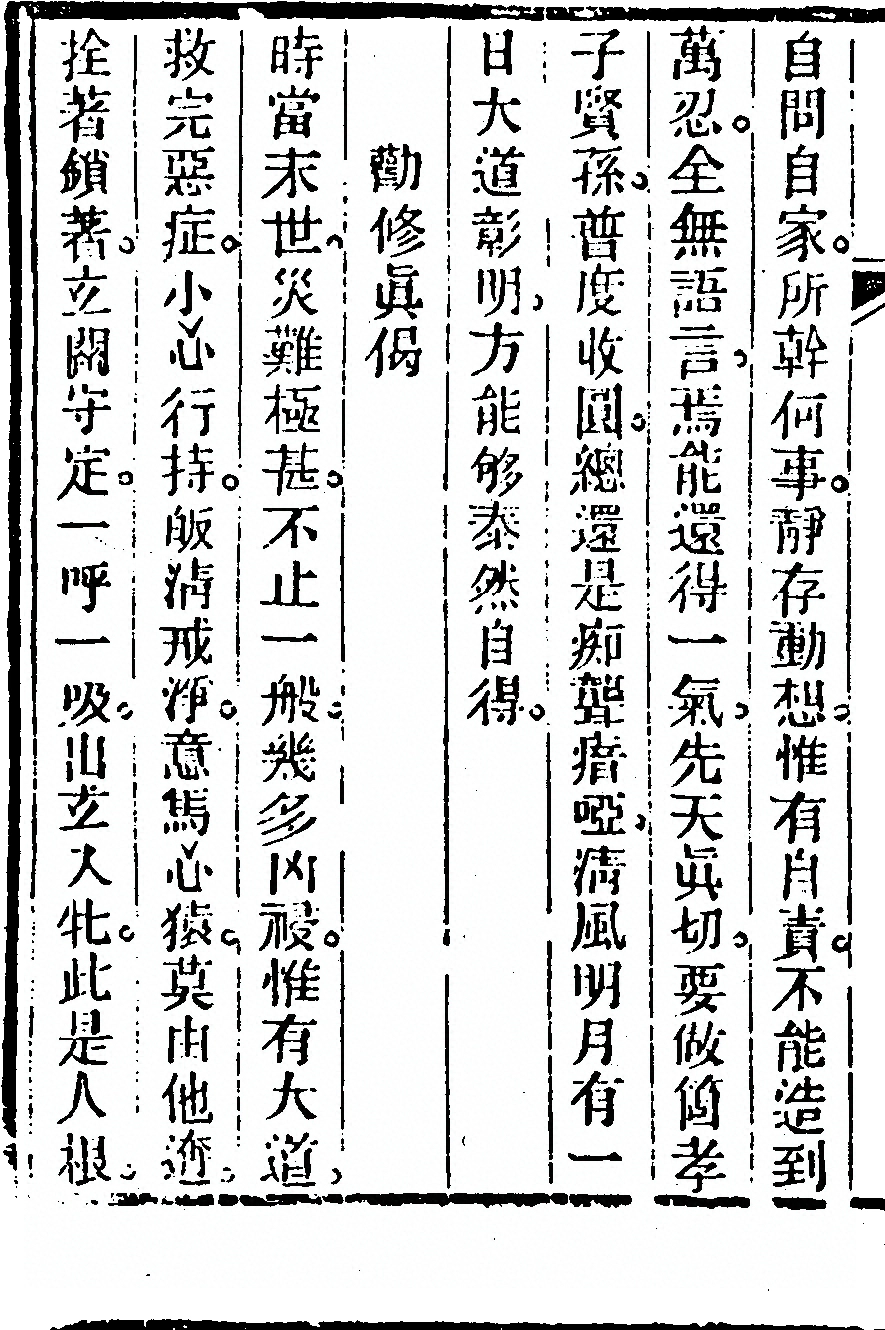 自問自家。所幹何事。靜存動想。惟有自責。不能造到
萬忍。全無語言。焉能還得一氣。先天眞切。要做箇孝
子賢孫。普度收圓。總還是痴聾瘖啞。清風明月有一
日大道彰明。方能够泰然自得。
勸修眞偈
時當末世。災難極甚。不止一般。幾多凶祲。惟有大道。
救完惡症。小心行持。皈清戒淨。意馬心猿。莫由他遊。
拴著鎖著。立關守定。一呼一吸。出玄入牝。此是人根。